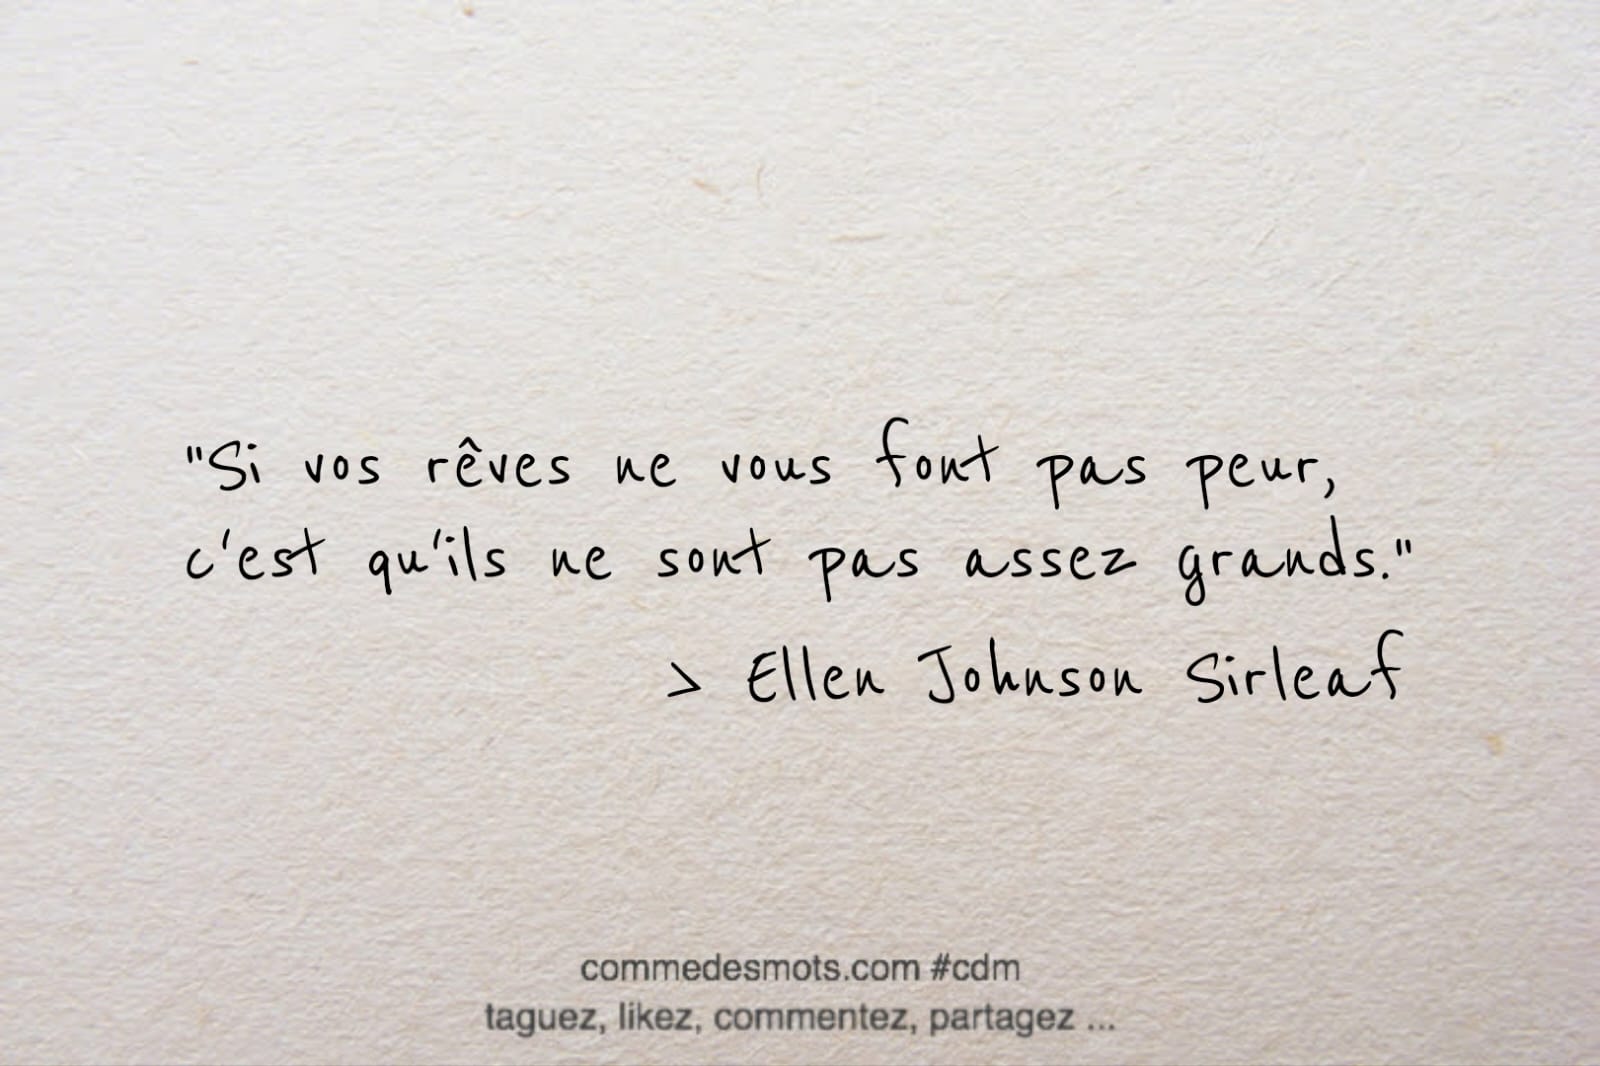 "Si vos rêves ne vous font pas peur,
c'est qu'ils ne sont pas assez grands."
> Ellen Johnson Sirleaf
commedesmots.com #cdm
taguez, likez, commentez, partagez ...